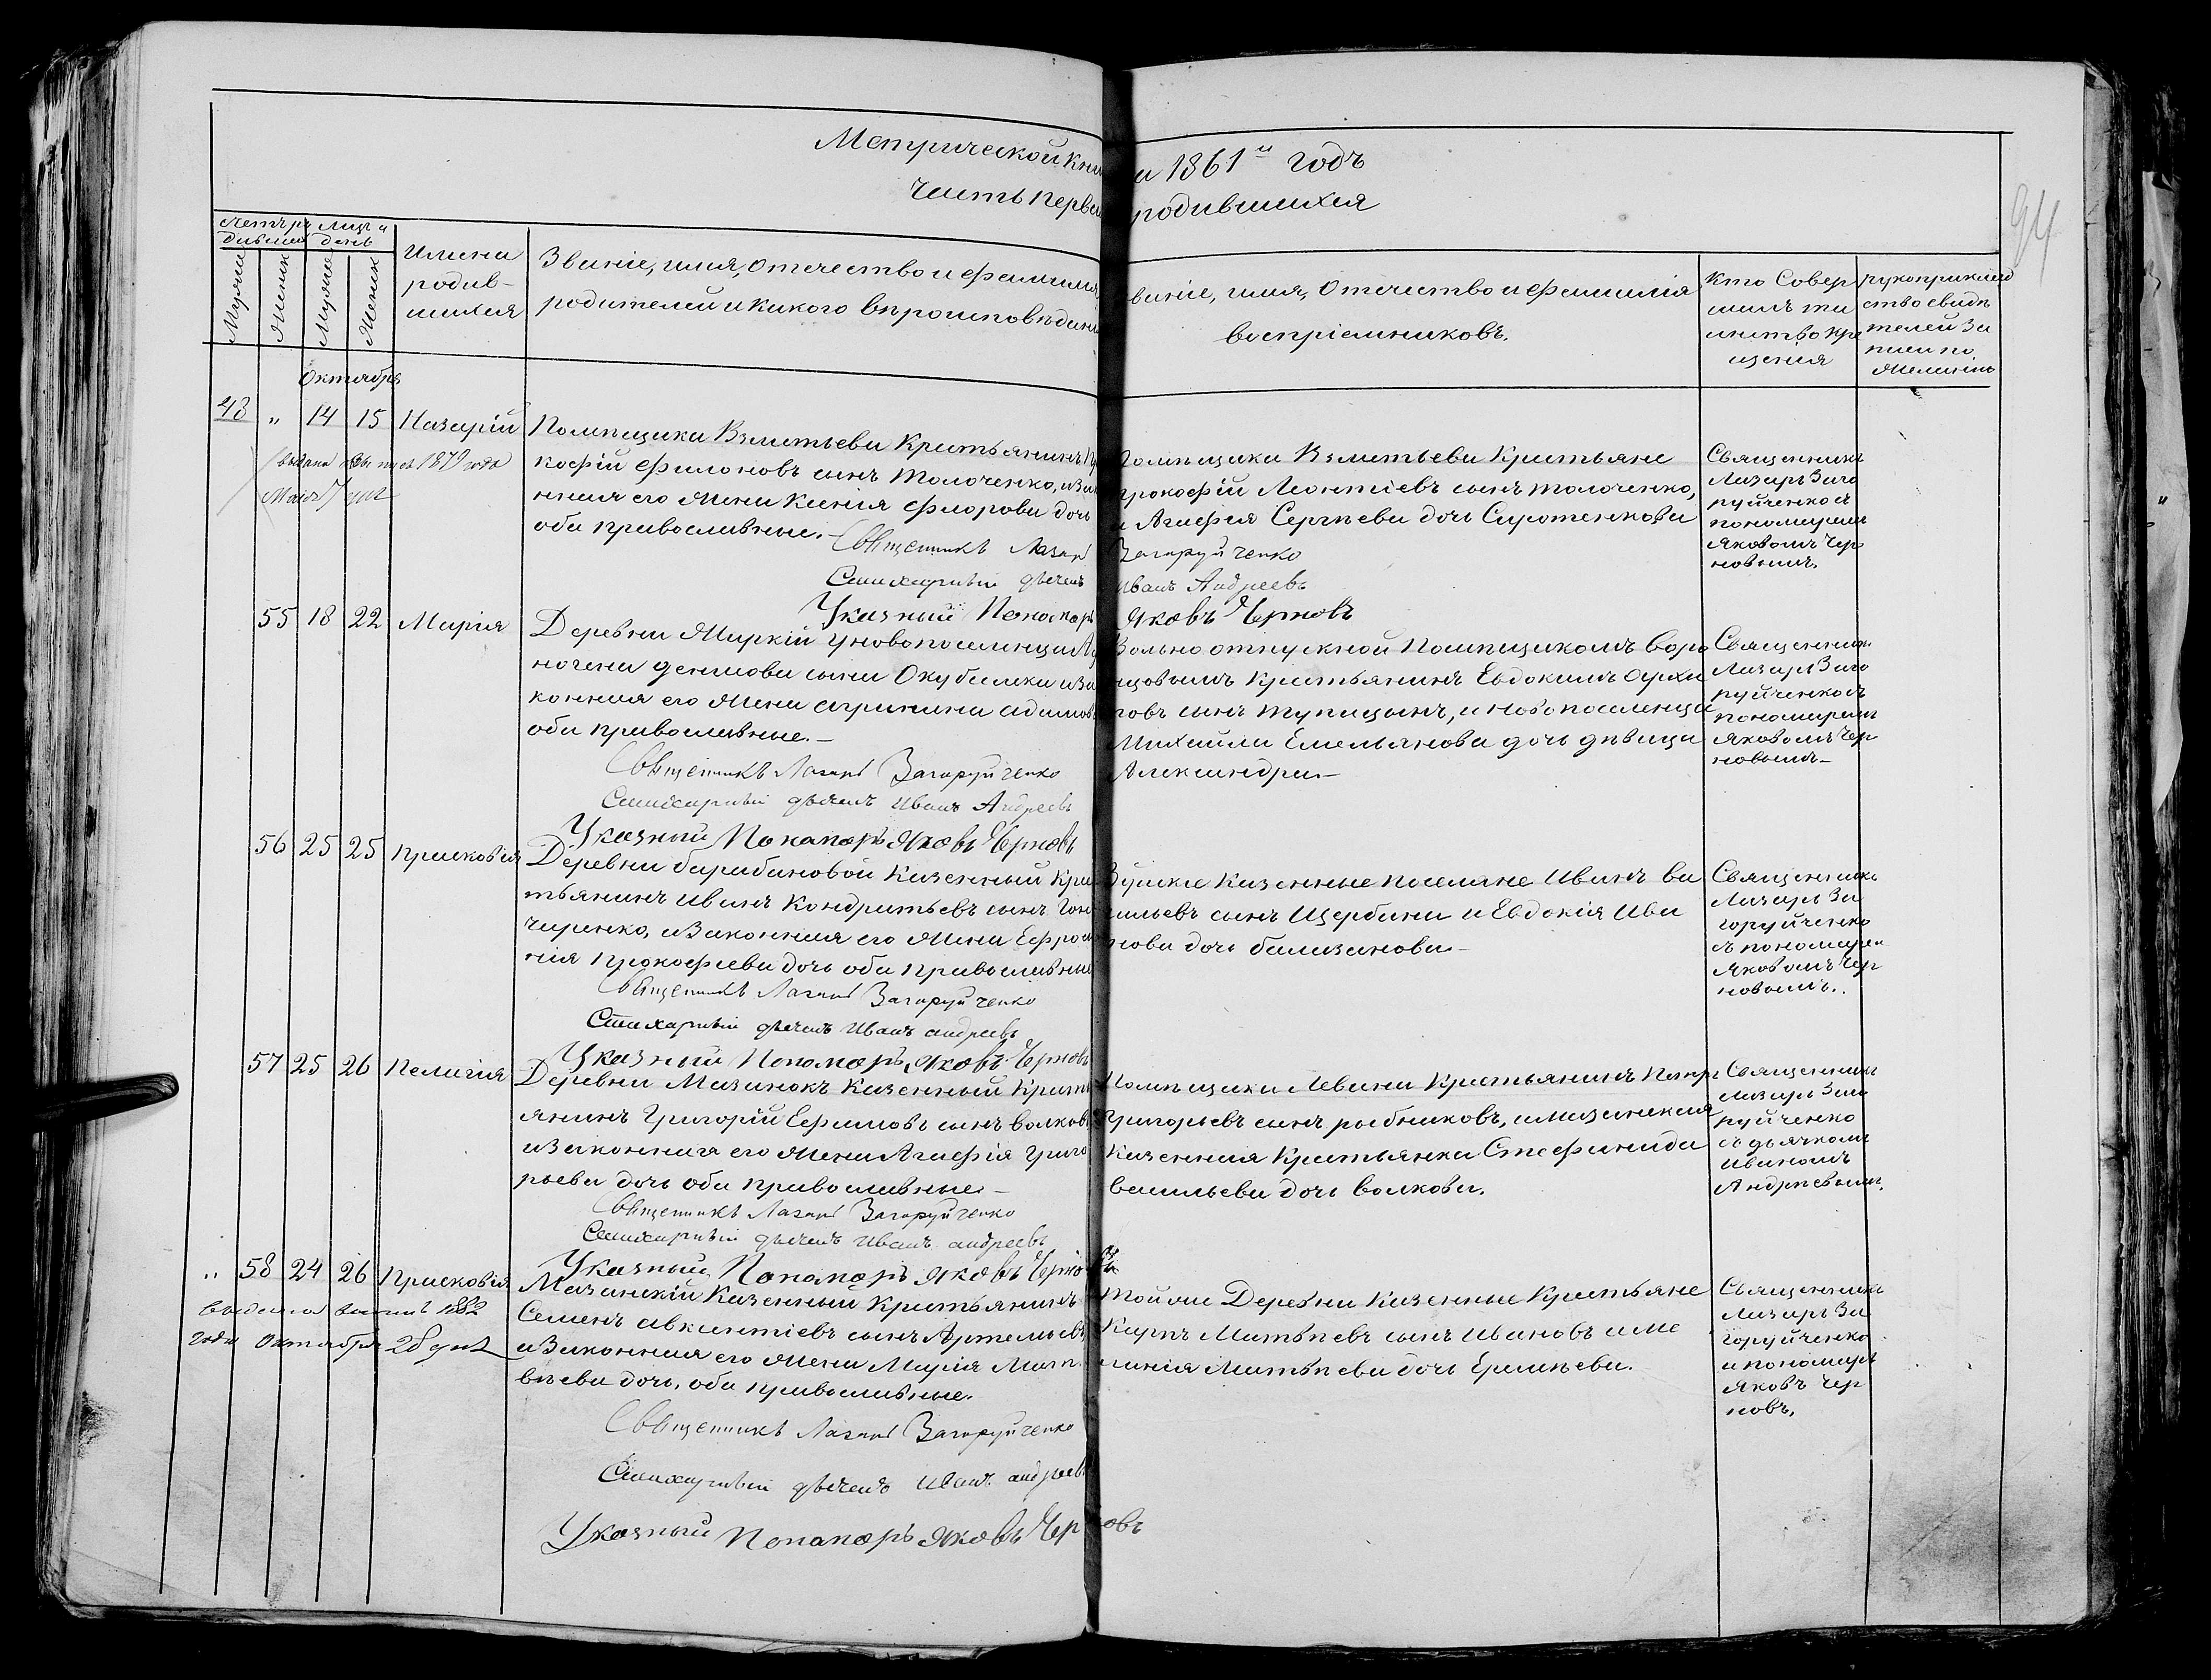 Метрической Кни и 1861й годъ
Часть Перва родившихся
94
Счетъ ро дивши
Мцъ и день
Мужск
Женск
Мужск
Женск
Имена
родив-
шихся
Званіе, имя, Отечество и фамилія
родителей и какого вѣроисповѣдані
вініе, имя, Отечество и фамилія
воспріемниковъ.
Кто Совер
шилъ та
инство кре
щенія
рукоприклад
ство свидѣ
телей за
писи по
желанію
Октябрь
48 " 14 15 Назарій
Помѣщика Въ Крестьянинъ Пр
кофій Филоновъ сынъ Толоченко, иза
нная его жена Ксенія Флорова дочь
оба православные.
Священникъ Лазарь Загоруйченко
Стихарный дьячекъ Иванъ Андреевъ
Указный Понамарь Яковъ Черновъ
выдана 1870 года
Маія 7 дня
Помѣщика Крестьяне
Прокофій Леонтіевъ сынъ толоченко,
и Агафія Сергѣева дочь Сиротенкова
Священникъ
Лазарь Заго
руйченко съ
пономаремъ
Яковомъ Чер
новымъ.
55 18 22 Марія
Деревни новопоселенца
сына иза
конная его жена
оба православные.—
Священникъ Лазарь Загоруйченко
Стихарный дьячекъ Иванъ Андреевъ
Указный Понамарь Яковъ Черновъ
Вольноотпускной Помѣщикомъ Воро
нцовымъ Крестьянинъ Евдокимъ
повъ сынъ тупицынъ, и новопоселенца
Михаила Емельянова дочь дѣвица
Александра—
Священникъ
Лазарь Заго
руйченко съ
пономаремъ
Яковомъ Чер
новымъ—
56 25 25 Прасковія
Деревни барабановой Казенный Кре
тьянинъ Иванъ Кондратьевъ сынъ Гон
чаренко, и Законная его жена Ефроси
нія Прокофиева дочь оба православные
Священникъ Лазарь Загоруйченко
Стихарный дьячекъ Иванъ андреевъ
Указный Понамарь Яковъ Черновъ
Зуйскіе Казенные поселяне Иванъ ва
сильевъ сынъ Щербина и Евдокія Ива
нова дочь бализанова—
Священникъ
Лазарь За
горуйченко
съ пономарем
Яковомъ Чер
новымъ.
57 25 26 Пелагія
Деревни Мазанокъ Казенный Кресть
янинъ Григорій Ефимовъ сынъ волковъ
и Законная его жена Агафія Григо
рьева дочь оба православные—
Священникъ Лазарь Загоруйченко
Стихарный дьячекъ Иванъ андреевъ
Указный Понамарь Яковъ Черновъ
Помѣщика Левина Крестьянинъ Петр
Григорьевъ сынъ рыбниковъ, и мазанская
Казенная Крестьянка Стефанида
васильева дочь волкова.
Священникъ
лазарь Заго
руйченко
съ дьячкомъ
Иваномъ
Андреевымъ.
" 58 24 26 Прасковія
Мазанскій Казенный Крестьянинъ
Семенъ авксентіевъ сынъ Артемьевъ
и Законная его жена Марія Мат
вѣева дочь, оба православные.
Священникъ Лазарь Загоруйченко
Стихарный дьячекъ Иванъ андреевъ
Указный Понамарь Яковъ Черновъ
года Октября 28 дня
Той же Деревни Казенные Крестьяне
Карпъ Матвѣевъ сынъ Ивановъ и Ме
ланія Матвѣева дочь Ермѣева.
Священникъ
Лазарь За
горуйченко
и пономарь
Яковъ Чер
новъ.